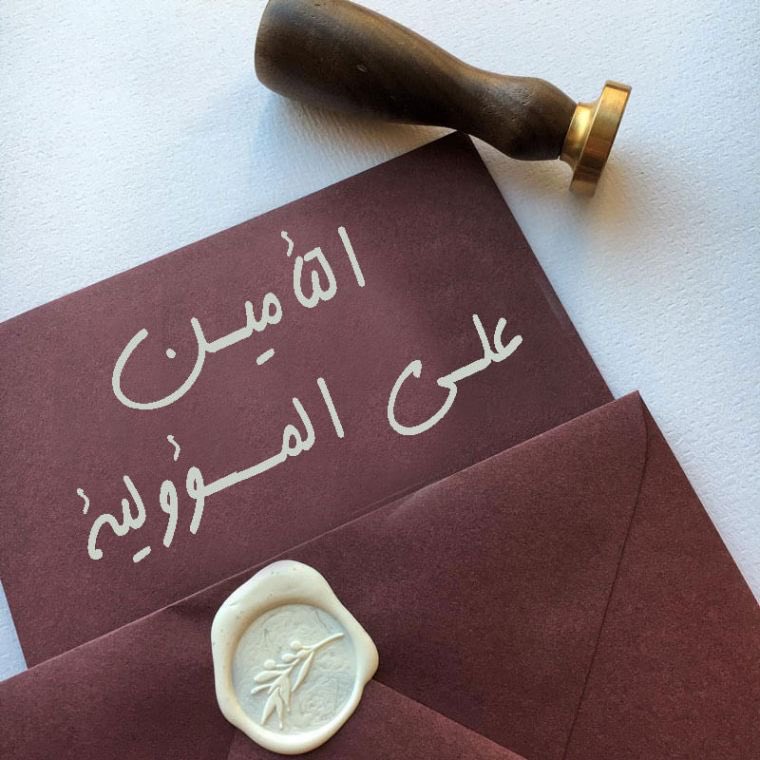 التأمين
على المسؤولية